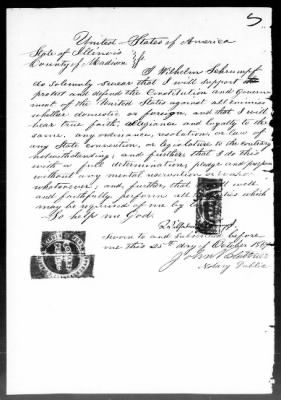 5
United States of America
State of Illinois
County of Madison
I Wilhelm Schrumpf
do solemnly swear that I will support
protect and defend the Constitution and Govern-
ment of the United States against all enemies
whether domestic or foreign, and that I will
bear true faith, allegiance and loyalty to the
same, any ordinance, resolution or law of
any State convention, or legislature to the contrary
notwithstanding; and further, that I do this
with a full determination, pledge and purpose
without any mental reservation or evasion
whatsoever; and further, that I will well
and faithfully perform all duties which
may be required of me by law
So help me God.
Sworn to and subscribed before
me this 25th day of October
John
Notary Public